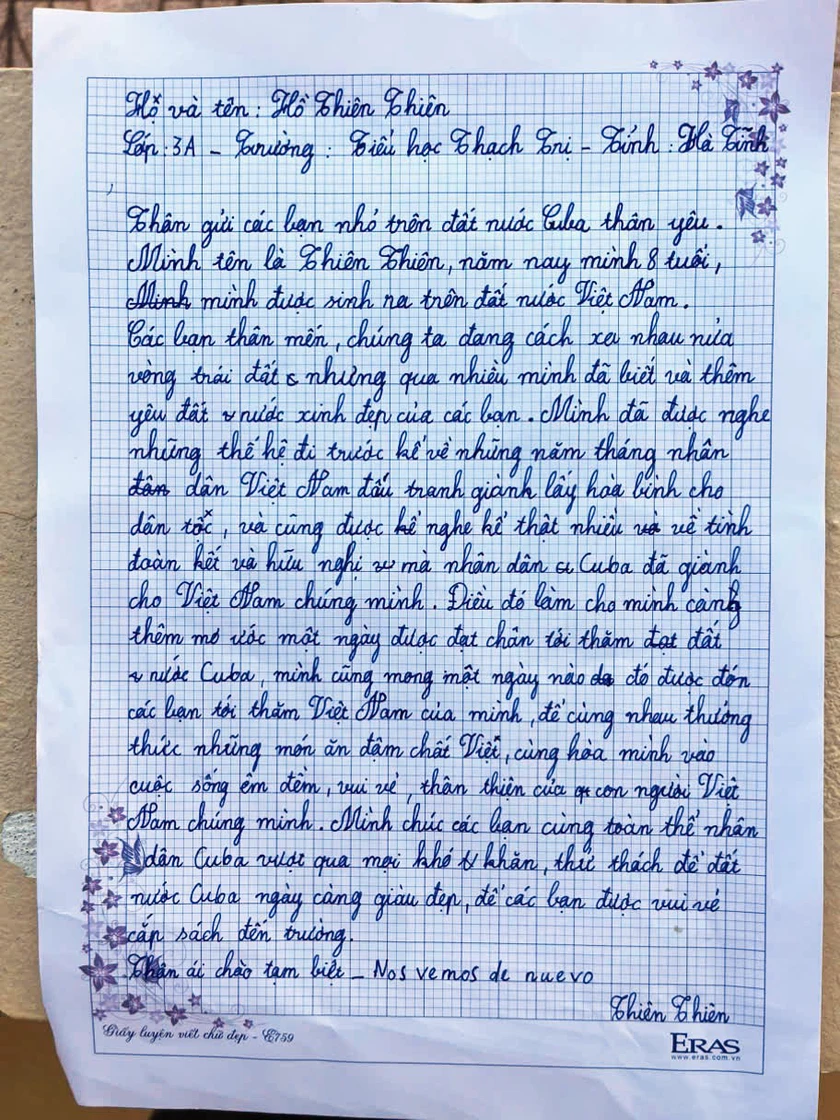 Họ và tên : Hồ Thiên Thiên
Lớp : 3A - Trường : Tiểu học Thạch Trị - Tỉnh : Hà Tĩnh
Thân gửi các bạn nhỏ trên đất nước Cuba thân yêu.
Mình tên là Thiên Thiên, năm nay mình 8 tuổi,
Minh mình được sinh ra trên đất nước Việt Nam.
Các bạn thân mến, chúng ta đang cách xa nhau nửa
vòng trái đất nhưng qua nhiều mình đã biết và thêm
yêu đất nước xinh đẹp của các bạn. Mình đã được nghe
những thế hệ đi trước kể về những năm tháng nhân
dân dân Việt Nam đấu tranh giành lấy hoà bình cho
dân tộc, và cũng được kể nghe kể thật nhiều và về tình
đoàn kết và hữu nghị mà nhân dân Cuba đã giành
cho Việt Nam chúng mình. Điều đó làm cho mình càng
thêm mơ ước một ngày được đạt chân tới thăm đạt đất
nước Cuba, mình cũng mong một ngày nào đó được đón
các bạn tới thăm Việt Nam của mình, để cùng nhau thưởng
thức những món ăn đậm chất Việt, cùng hòa mình vào
cuộc sống êm đềm, vui vẻ, thân thiện của con người Việt
Nam chúng mình. Mình chúc các bạn cùng toàn thể nhân
dân Cuba vượt qua mọi khó khăn, thử thách để đất
nước Cuba ngày càng giàu đẹp, để các bạn được vui vẻ
cắp sách đến trường.
Thân ái chào tạm biệt - Nos vemos de nuevo
Thiên Thiên
Giấy luyện viết chữ đẹp - E759
ERAS
www.eras.com.vn